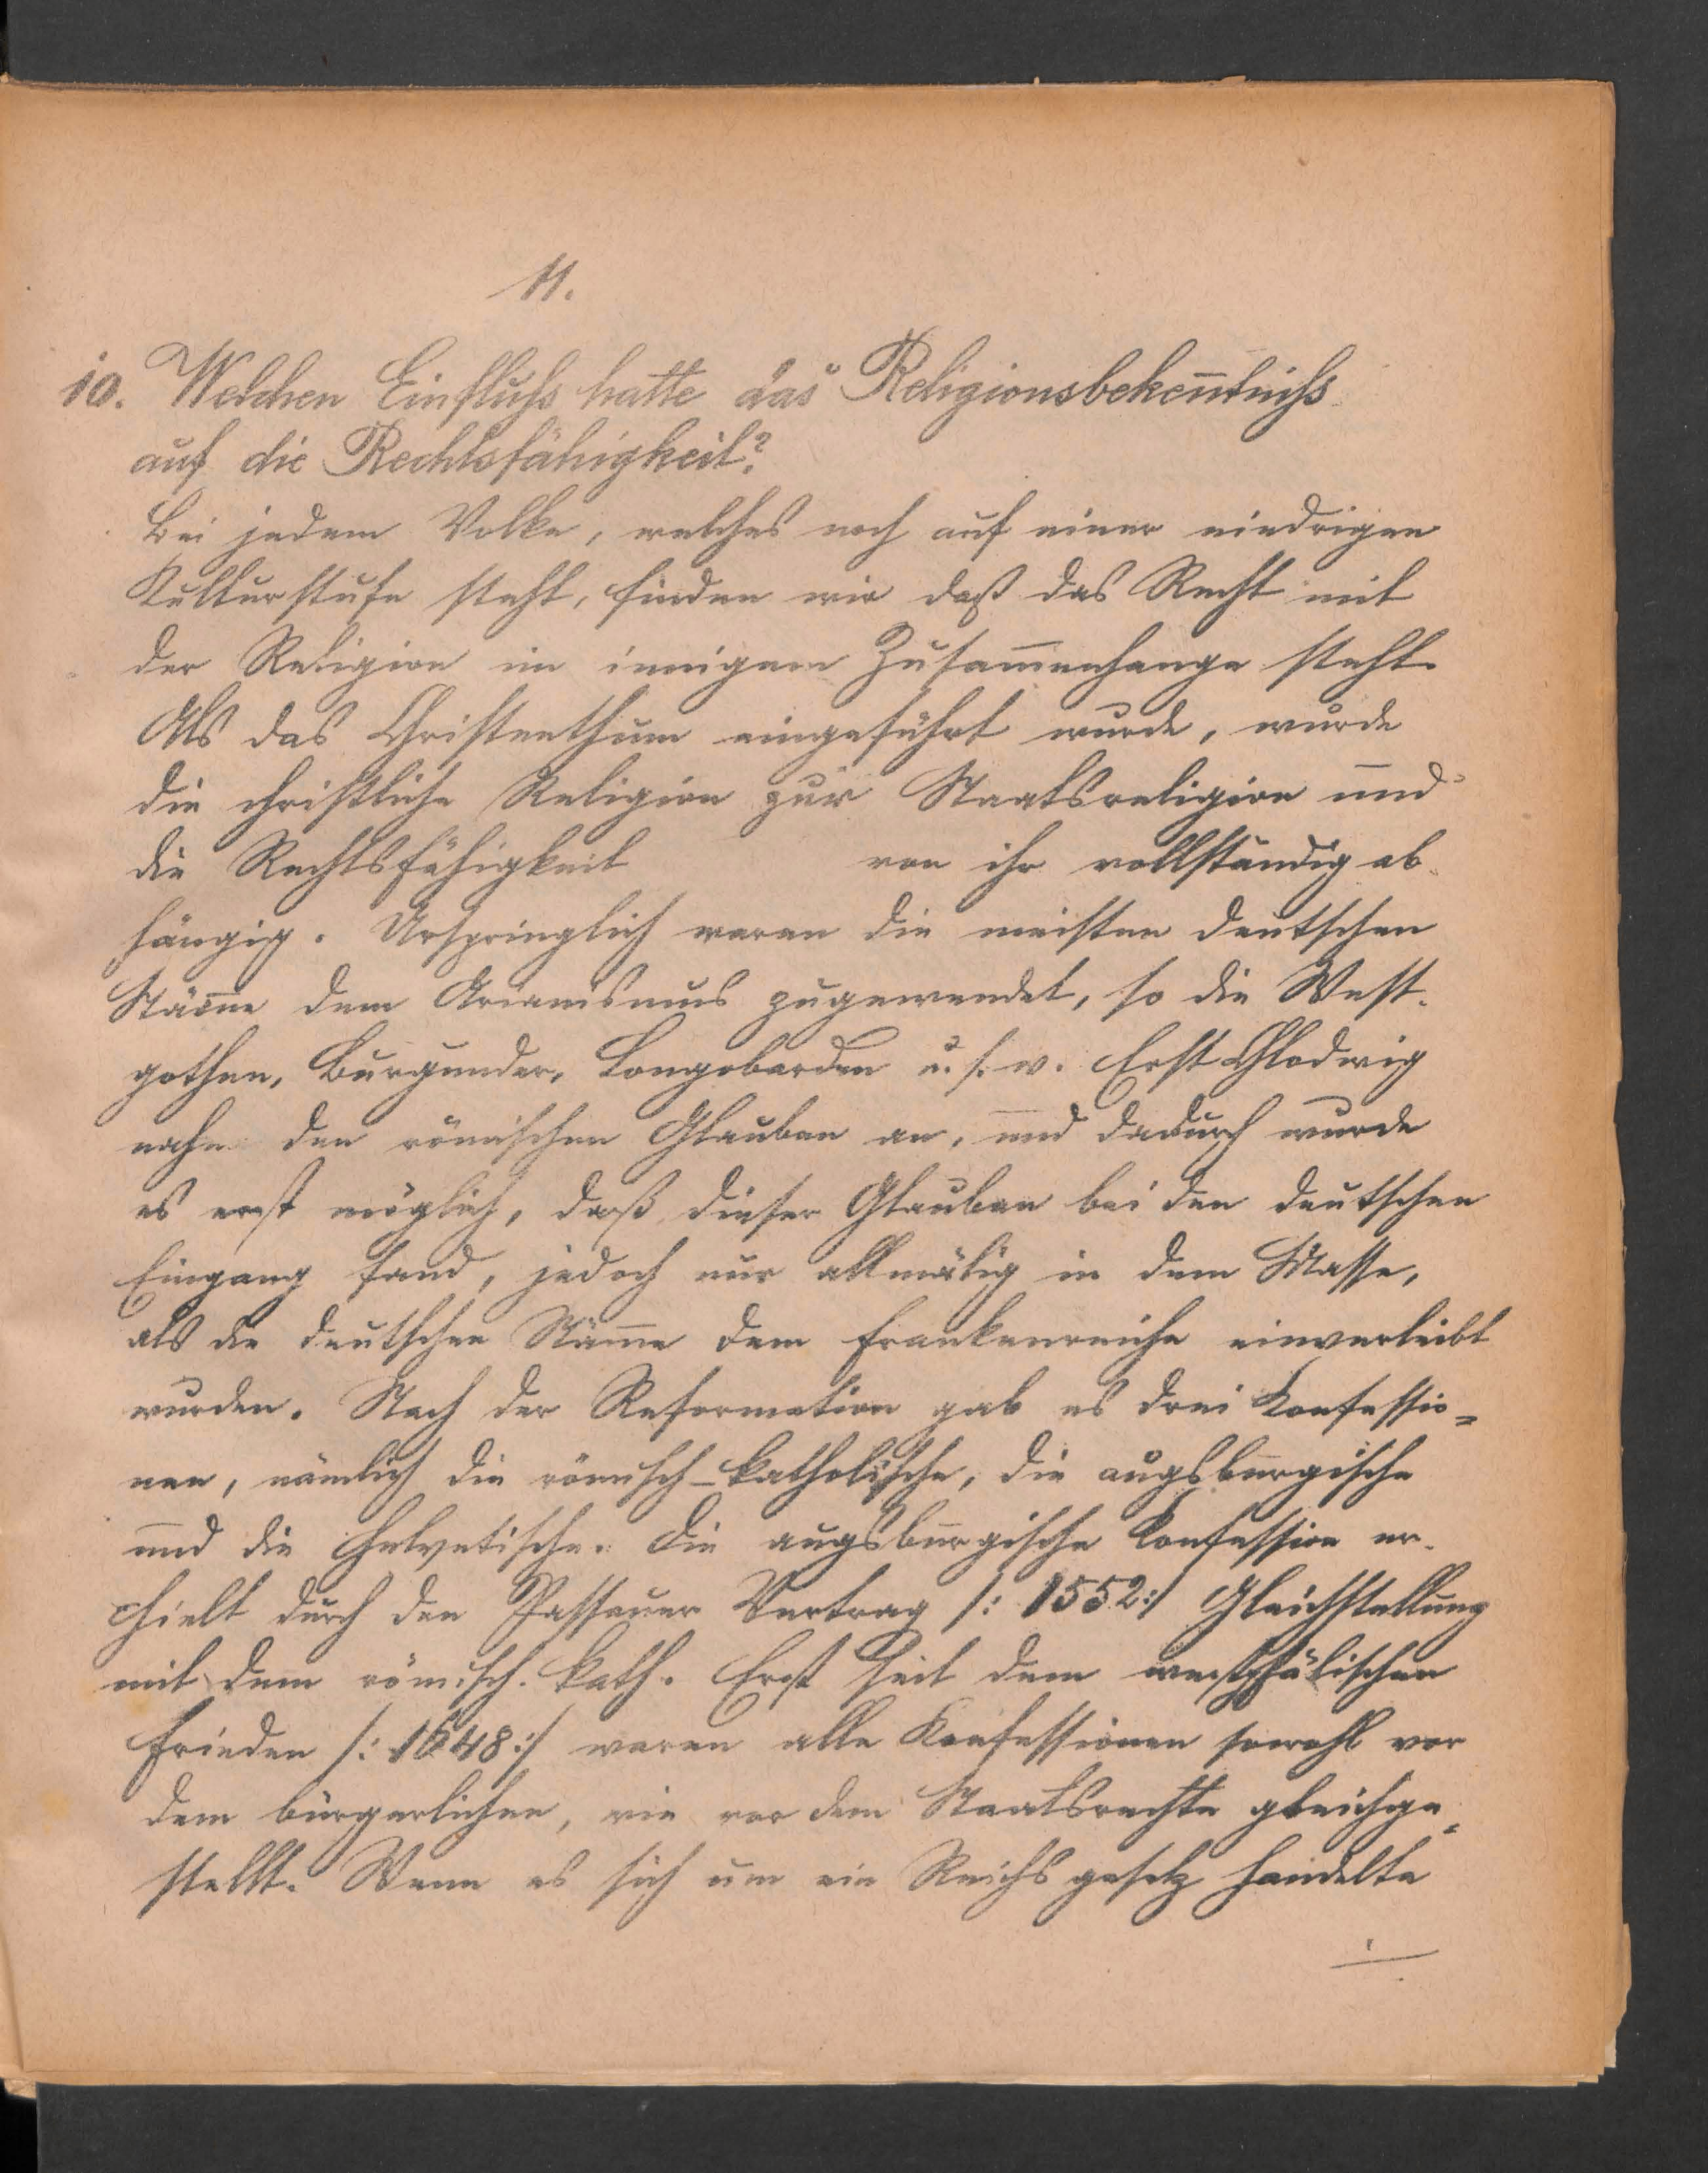 11.
10. Welchen Einfluſs hatte das Religionsbekeñtniſs
auf die Rechtsfähigkeit?
Bei jedem Volke, welches noch auf einer niedrigen
Kulturstufe steht, finden wir daß das Recht mit
der Religion im innigem Zusam̅enhange steht.
Als das Christenthum eingeführt wurde, wurde
die christliche Religion zur Staatsreligion und
die Rechtsfähigkeit von ihr vollständig ab-
hängig. Ursprünglich waren die meisten deutschen
Stäm̅e dem Arianismus zugewendet, so die West-
gothen, Burgunder, Longobarden u. s. w. Erst Chlodwig
nahm den römischen Glauben an, und dadurch wurde
es erst möglich, daß dieser Glauben bei den deutschen
Eingang fand, jedoch nur allmälig in dem Masse,
als die deutschen Stäm̅e dem Frankenreiche einverleibt
wurden. Nach der Reformation gab es drei Konfessio=
nen, nämlich die römisch-katholische, die augsburgische
und die helvetische. Die augsburgische Konfession er-
hielt durch den Passauer Vertrag /: 1552 :/ Gleichstellung
mit dem römisch. kath. Erst seit dem westphälischen
Frieden /: 1648 :/ waren alle Konfessionen sowohl vor
dem bürgerlichen, wie vor dem Staatsrechte gleichge=
stellt. Wenn es sich um ein Reichsgesetz handelte